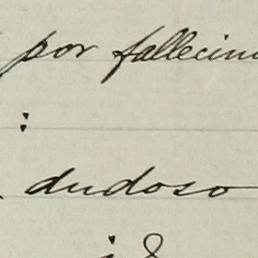 por fallecim
:
dudoso